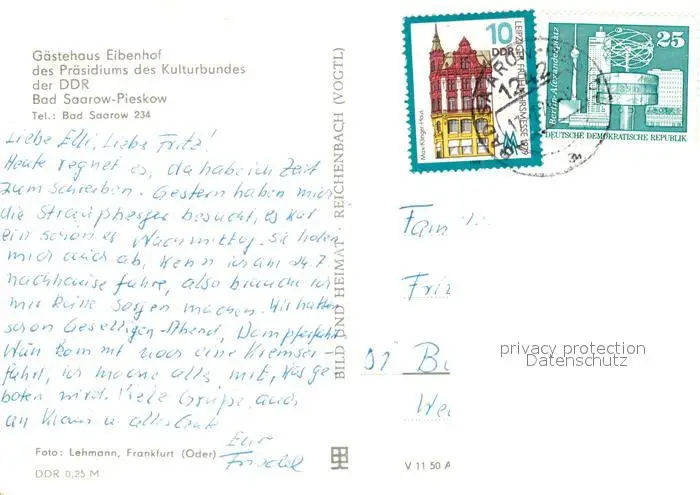 Gästehaus Eibenhof
des Präsidiums des Kulturbundes
der DDR
Bad Saarow-Pieskow
Tel.: Bad Saarow 234
Liebe Elli, Liebe Fritz!
Heute regnet es, da habe ich Zeit
zum schreiben. Gestern haben mich
die besucht, es war
ein schöner Nachmittag. Sie holen
mich auch ab, wenn ich am 24.7
nachhause fahre, also brauche ich
mir keine Sorgen machen. Wir hatten
schon Geselligen-Abend, Dampferfahrt
Nun kommt noch eine Kremser-
fahrt, ich mache alles mit, was ge
boten wird. Viele Grüße auch
an Klaus u. alles Gute
Eure
Foto: Lehmann, Frankfurt (Oder)
DDR 0,25 M
BILD UND HEIMAT REICHENBACH (VOGTL)
V 11 50 A
10
DDR
LEIPZIGER FRÜHJAHRSMESSE 1979
Max-Klinger-Haus
25
Berlin-Alexanderplatz
DEUTSCHE DEMOKRATISCHE REPUBLIK
BAD SAAROW
1242
Fam
Fri
privacy protection
Datenschutz